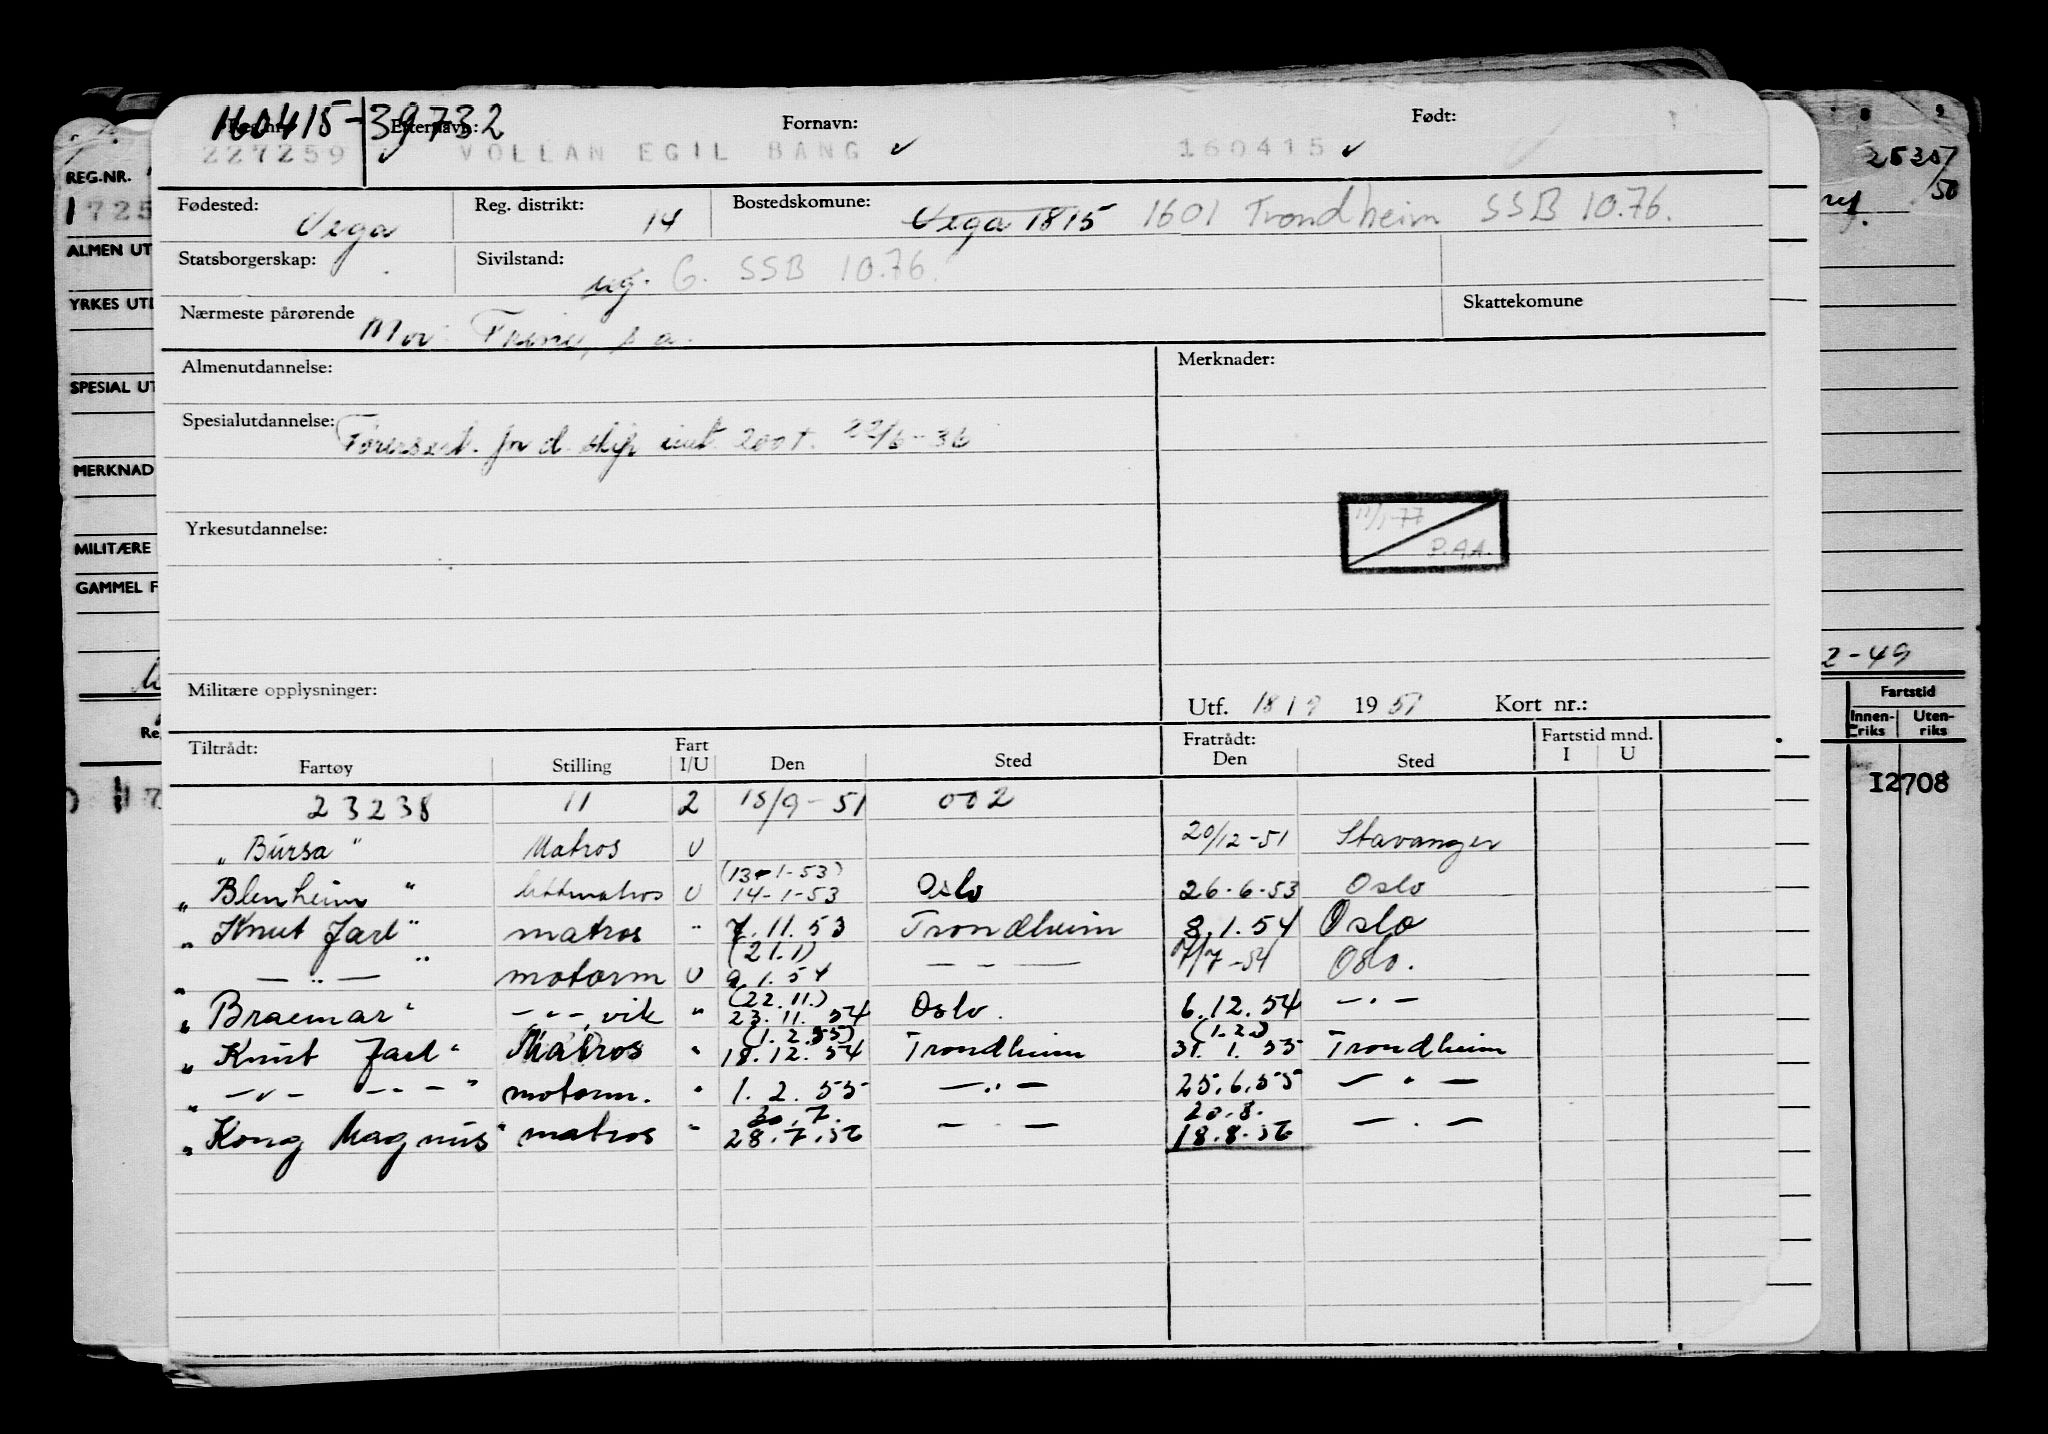 160415-39732
Reg.nr. Efternavn: Fornavn: Født:
227259 VOLLAN EGIL BANG 160415
25257
/50
REG.NR.
1725
Fødested: Vega Reg. distrikt: 14 Bostedskomune: Vega 1815 1601 Trondheim SSB 10.76.
ALMEN UT
Statsborgerskap: Sivilstand: ug. G. SSB 10.76.
YRKES UTD
Nærmeste pårørende Mor: s a. Skattekomune
Almenutdannelse: Merknader:
SPESIAL UT
Spesialutdannelse: Førersert. for d. skip int. 200 t. 22/6-36
MERKNAD
11/1-77
P.A.A.
Yrkesutdannelse:
MILITÆRE
GAMMEL F
2-49
Militære opplysninger: Utf. 18/9 1951 Kort nr.:
Fartstid
Innenriks Utenriks
Tiltrådt: Fart Fratrådt: Fartstid mnd.
Fartøy Stilling I/U Den Sted Den Sted I U
I2708
23238 11 2 18/9-51 002
"Bursa" Matros U 20/12-51 Stavanger
(13-1-53)
"Blenheim" lettmatros U 14-1-53 Oslo 26-6-53 Oslo
"Knut Jarl" matros " 7.11.53 Trondheim 8.1.54 Oslo
(21.1)
" — " — " motorm U 9.1.54 — - — 7/7-54 Oslo.
(22.11.)
"Braemar" — " —, vik " 23.11.54 Oslo. 6.12.54 — " —
(1.2.55) (1.2.)
"Knut Jarl" Matros " 18.12.54 Trondheim 31.1.55 Trondheim
" — " — — " — " motorm. " 1.2.55 — " — 25.6.55 — " —
30.7. 20.8.
"Kong Magnus" matros " 28.7.56 — " — 18.8.56 — " —